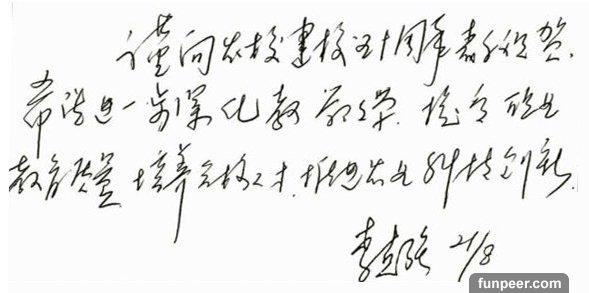 谨向农校建校五十周年表示祝贺.
希望进一步深化教育改革. 提高职业
教育质量, 培养合格人才, 推进农业科技创新.
李克强 21/8
funpeer.com